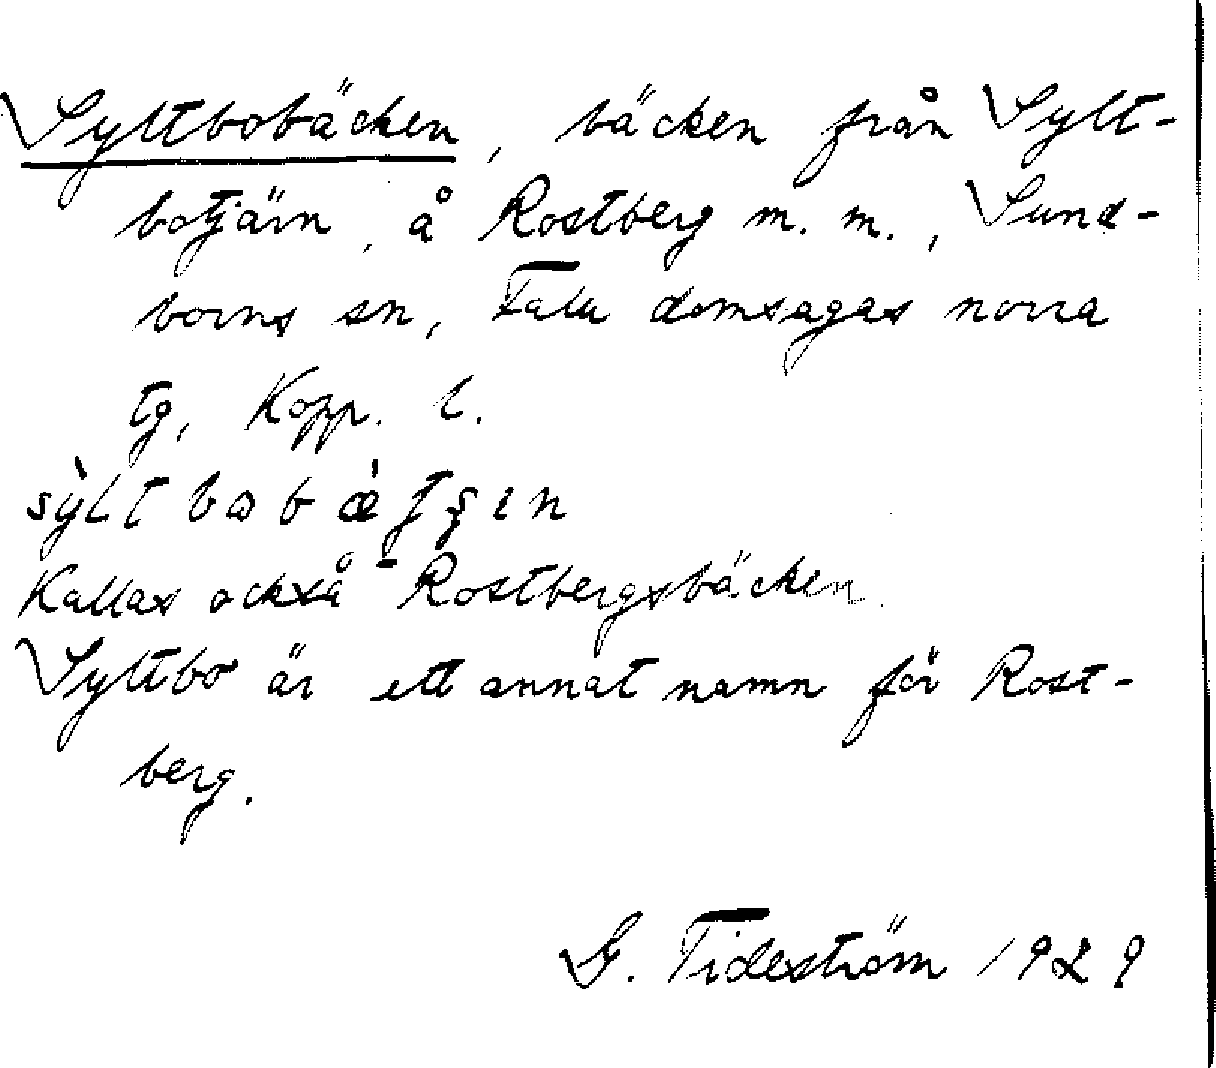 Syltbobäcken, bäcken från Sylt-
botjärn, å Rostberg m. m., Sund-
borns sn, Falu domsagas norra
tg, Kopp. l.
Kallas också Rostbergsbäcken.
Syltbo är ett annat namn för Rost-
berg.
G. Tideström 1929